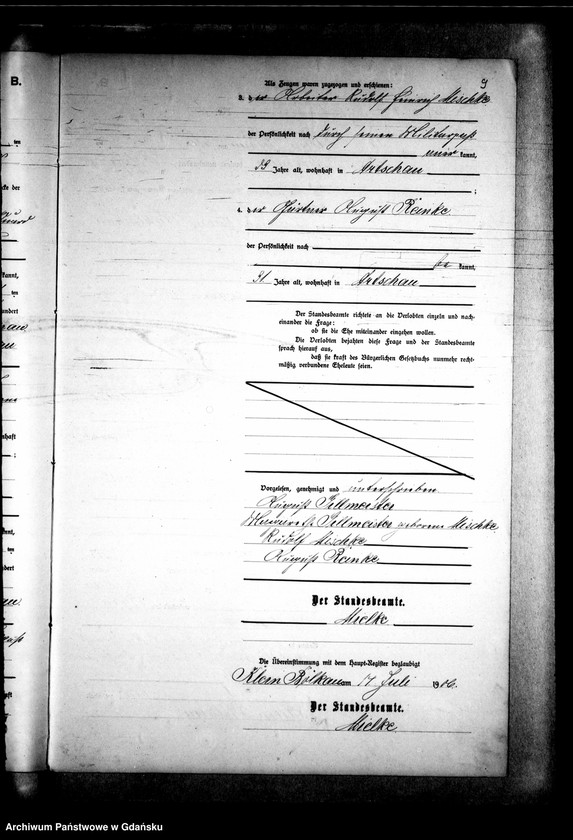 B.
9
Als Zeugen waren zugezogen und erschienen:
3. der Arbeiter Rudolf Heinrich Mischke
der Persönlichkeit nach durch seinen Militärpaß
kannt,
39 Jahre alt, wohnhaft in Artschau
;
4. der Gärtner August Reinke
der Persönlichkeit nach
be kannt,
31 Jahre alt, wohnhaft in Artschau
Der Standesbeamte richtete an die Verlobten einzeln und nach-
einander die Frage:
ob sie die Ehe miteinander eingehen wollen.
Die Verlobten bejahten diese Frage und der Standesbeamte
sprach hierauf aus,
daß sie kraft des Bürgerlichen Gesetzbuchs nunmehr recht-
mäßig verbundene Eheleute seien.
Vorgelesen, genehmigt und unterschrieben
August Tellmeister
Tellmeister geborene Mischke
Rudolf Mischke
August Reinke
Der Standesbeamte.
Mielke
Die Übereinstimmung mit dem Haupt-Register beglaubigt
Klein Bölkau am 7 Juli 1906.
Der Standesbeamte.
Mielke
Archiwum Państwowe w Gdańsku